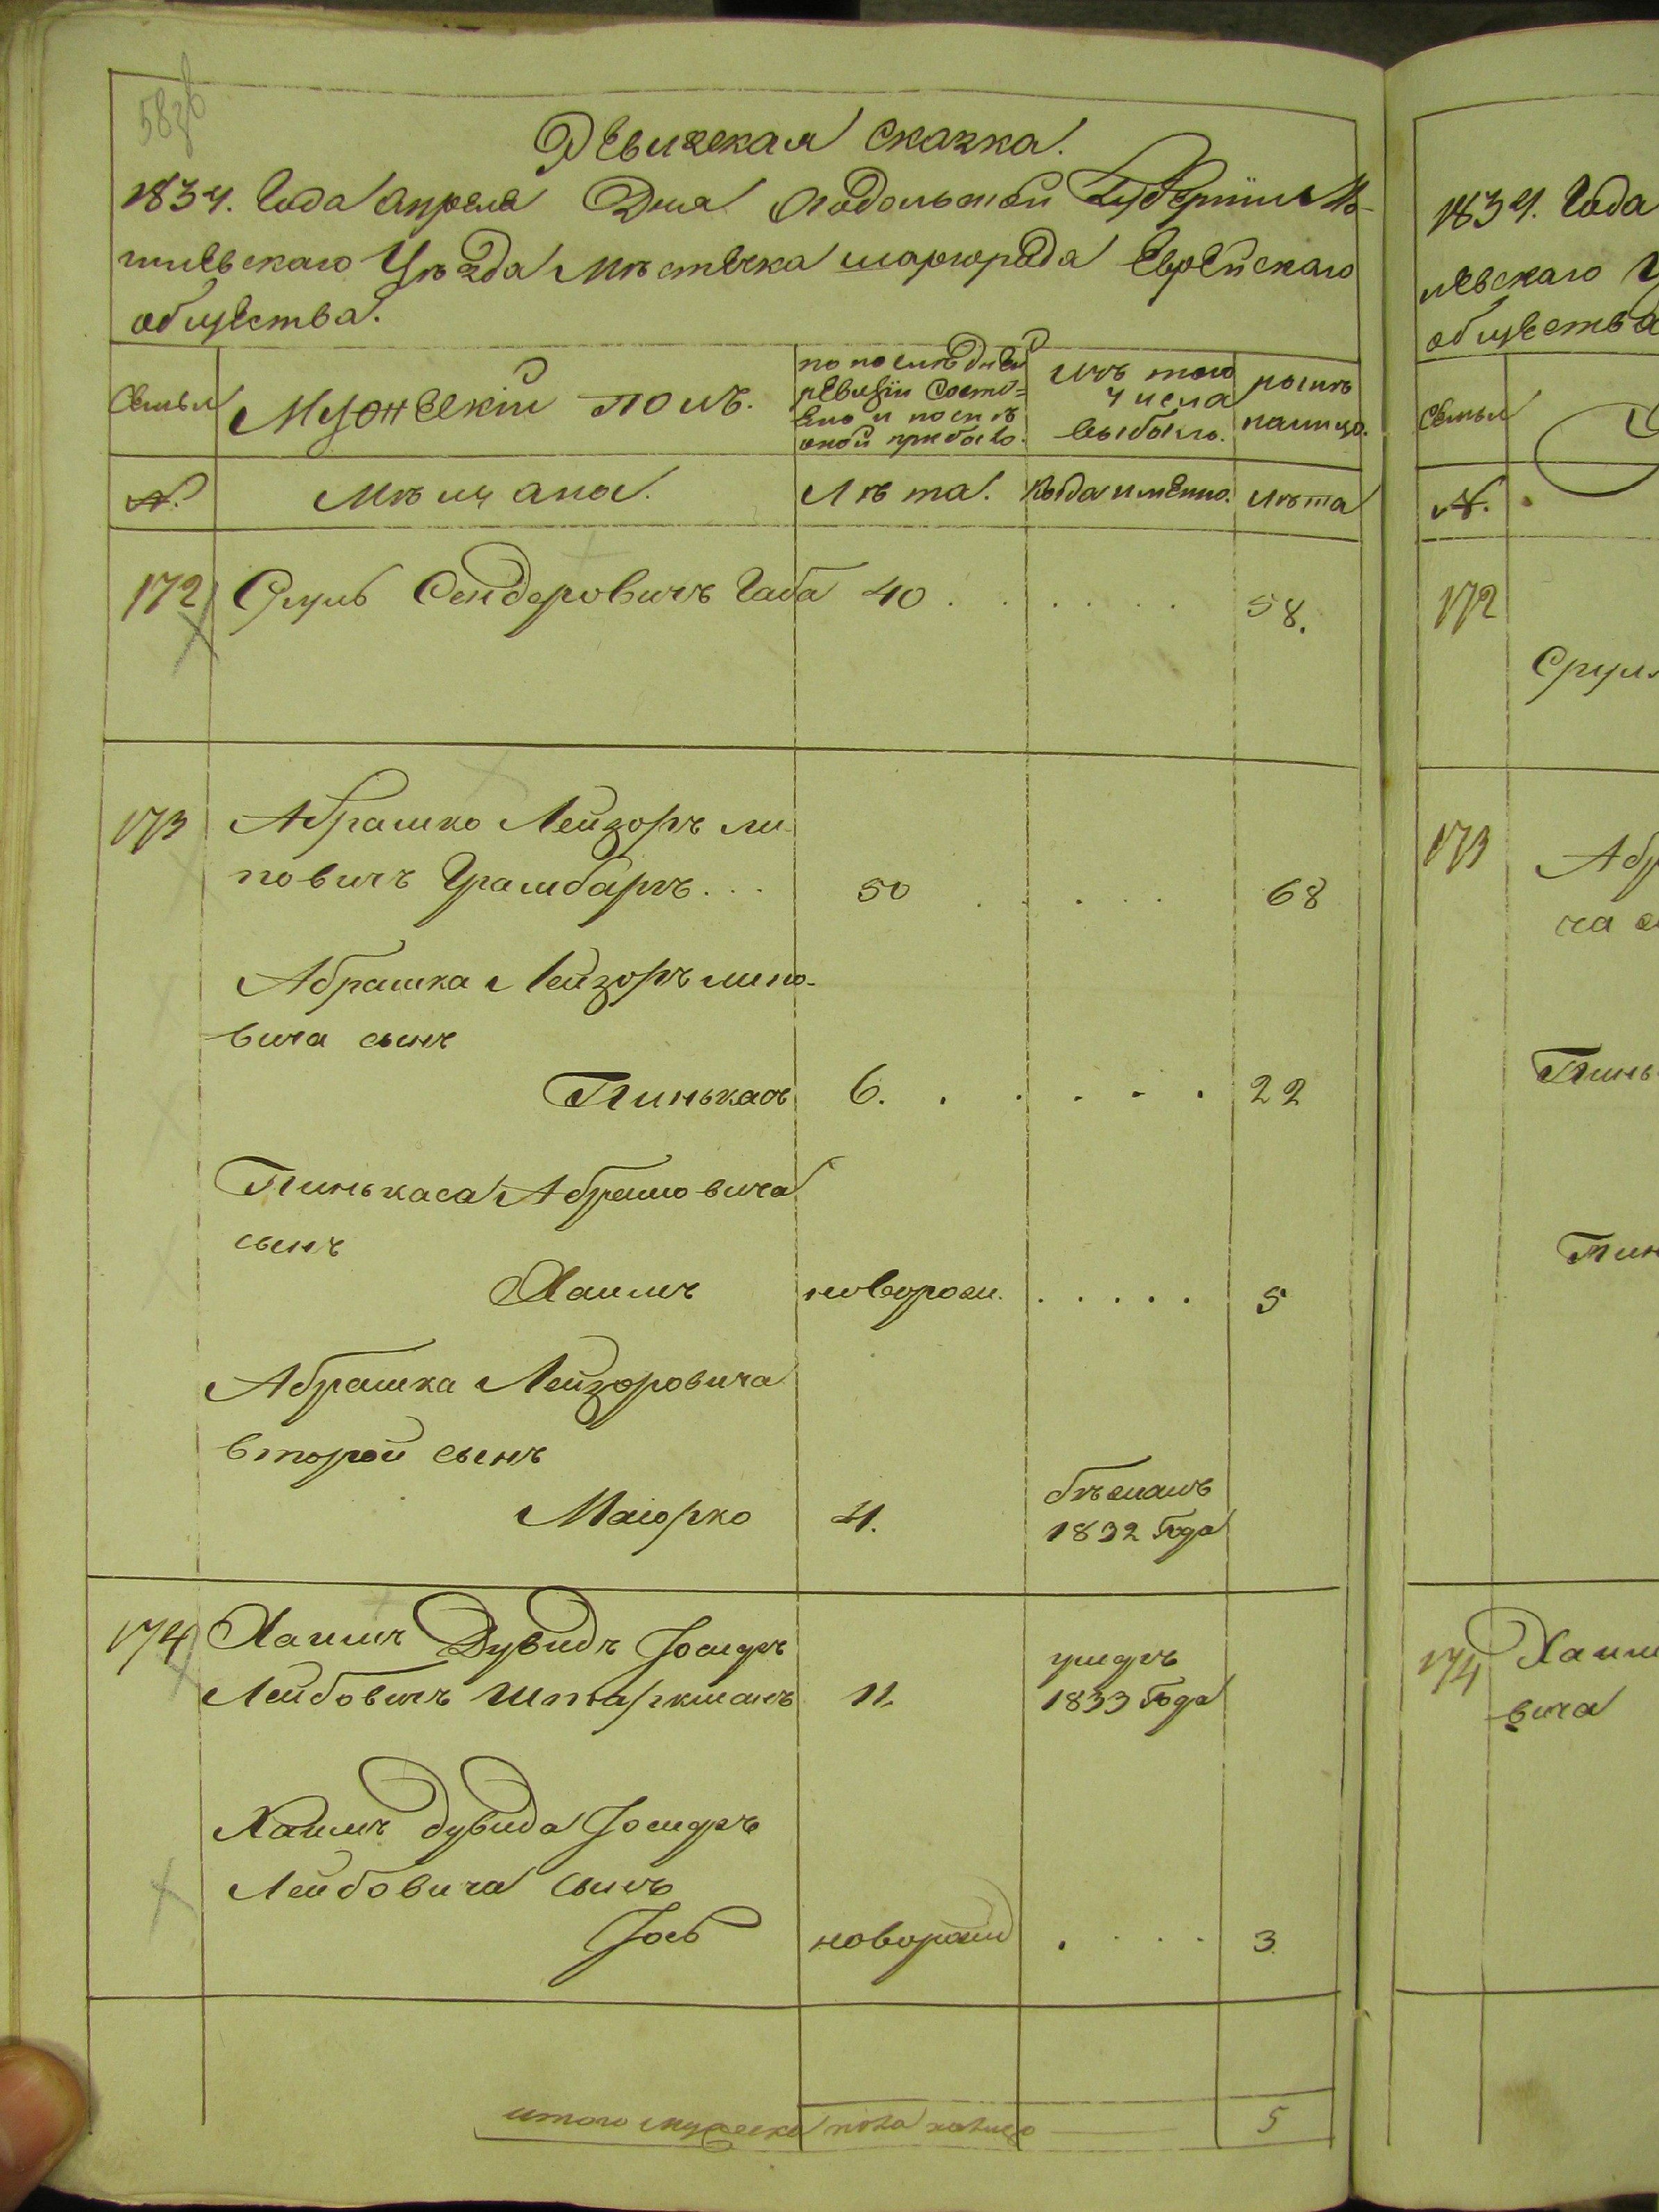 Ревизская сказка.
1834. Года апреля Дня Подольской Губернии Мо-
гилевскаго Уезда Местечка шаргорода Еврейскаго
общества.
Семьи
Мужеский полъ.
по последней
ревизiи Состо-
яло и после
оной прибыло.
Изъ того
числа
выбыло.
ныне
налицо.
№.
Мещане.
Лета.
Когда именно.
Лета
172
Сруль Сендеровичъ Габа 40 . . . . . . 58.
173
Абрашко Лейзоръ ли-
повичъ Грамбаръ. . . 50 . . . . . 68
Абрашка Лейзоръ липо-
вича сынъ
Пинькасъ 6. . . . . . 22
Пинькаса Абрамовича
сынъ
Хаимъ новорож. . . . . . 5
Абрашка Лейзоровича
второй сынъ
Маiорко 4. бежалъ
1832 Года
174
Хаимъ Дувидъ Iосифъ
Лейбовичъ Штаркманъ 11. умеръ
1833 Года
Хаимъ дувида Iосифъ
Лейбовича сынъ
Iось новорожд . . . . 3.
итого мужеска пола налицо 5
1834. Года
левскаго У
общества
Семьи
№.
172
Сруля
173
Абр
ча
Пинь
Пин
174
Хаим
вича